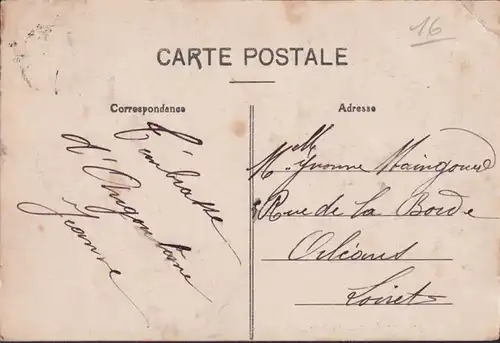 16
CARTE POSTALE
Correspondance
Adresse
t'embrasse
d'Angoulême
Jeanne
Mlle Yvonne Maingourd
Rue de la Borde
Orléans
Loiret